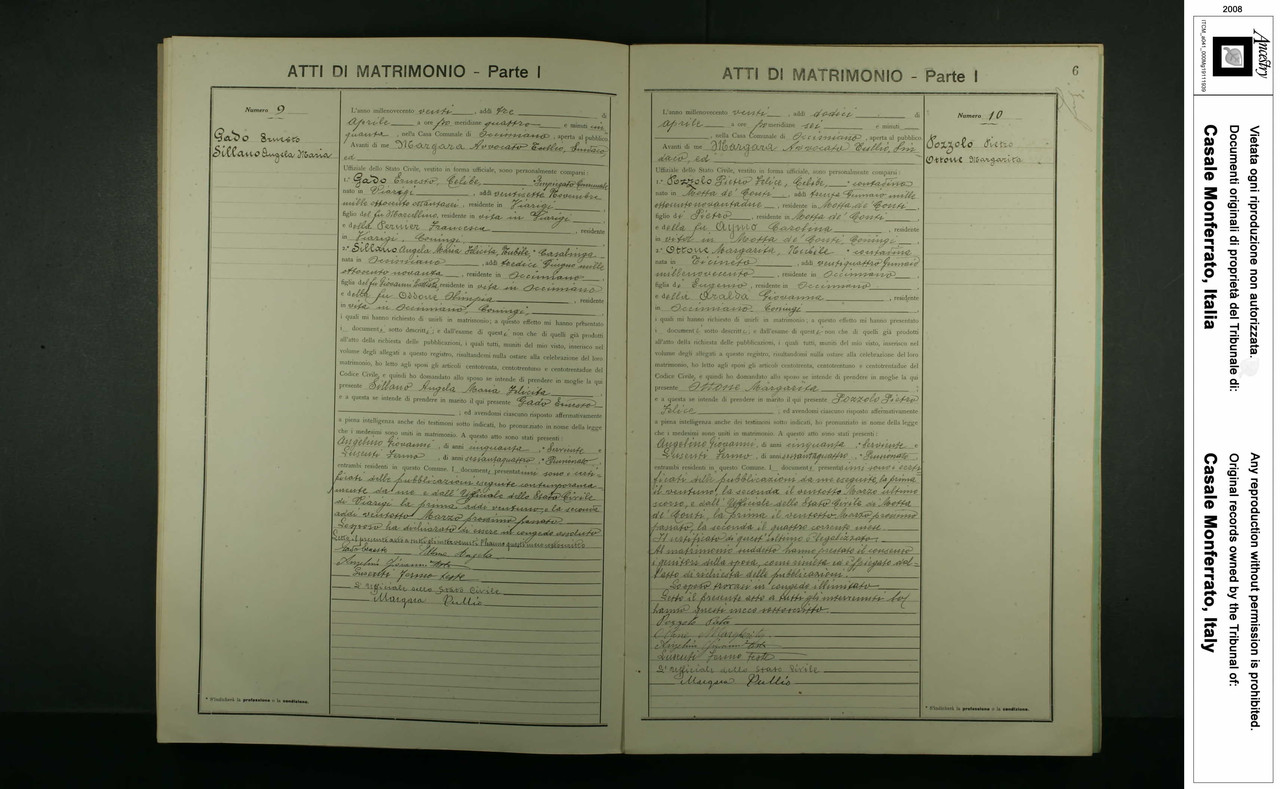 ATTI DI MATRIMONIO - Parte I
Numero 9
Gado Ernesto
Sillano Angela Maria
L'anno millenovecento venti, addì tre di
Aprile a ore po meridiane quattro e minuti cin
quanta, nella Casa Comunale di Occimiano, aperta al pubblico
Avanti di me Margara Avvocato Tullio, Sindaco,
ed
Uffiziale dello Stato Civile, vestito in forma ufficiale, sono personalmente comparsi:
1.° Gado Ernesto, Celibe, Impiegato Comunale
nato in Viarigi, addì ventisette Novembre
mille ottocento ottantasei, residente in Viarigi
figlio del fu Marcellino, residente in vita in Viarigi
e della Ferrier Francesca, residente
in Viarigi, Coniugi
2.° Sillano Angela Maria Felicita, Nubile, Casalinga
nata in Occimiano, addì tredice Giugno mille
ottocento novanta, residente in Occimiano
figlia del fu Giovanni Battista, residente in vita in Occimiano
e della fu Ottone Olimpia, residente
in vita in Occimiano, Coniugi,
i quali mi hanno richiesto di unirli in matrimonio; a questo effetto mi hanno presentato
i documenti sotto descritti; e dall'esame di questi non che di quelli già prodotti
all'atto della richiesta delle pubblicazioni, i quali tutti, muniti del mio visto, inserisco nel
volume degli allegati a questo registro, risultandomi nulla ostare alla celebrazione del loro
matrimonio, ho letto agli sposi gli articoli centotrenta, centotrentuno e centotrentadue del
Codice Civile, e quindi ho domandato allo sposo se intende di prendere in moglie la qui
presente Sillano Angela Maria Felicita
e a questa se intende di prendere in marito il qui presente Gado Ernesto
; ed avendomi ciascuno risposto affermativamente
a piena intelligenza anche dei testimoni sotto indicati, ho pronunziato in nome della legge
che i medesimi sono uniti in matrimonio. A questo atto sono stati presenti:
Angelino Giovanni, di anni cinquanta, Serviente e
Lusenti Fermo, di anni sessantaquattro, Pensionato
entrambi residenti in questo Comune. I documenti presentatimi sono i certi-
ficati delle pubblicazioni eseguite contemporanea
mente da me e dall'Uffiziale dello Stato Civile
di Viarigi la prima addì ventuno, e la seconda
addì ventotto Marzo prossimo passato.
Lo sposo ha dichiarato di essere in congedo assoluto
Letto il presente atto a tutti gli intervenuti l'hanno questi meco sottoscritto
Gado Ernesto Sillano Angela
Angelino Giovanni teste
Lusenti Fermo teste
L'Uffiziale dello Stato Civile
Margara Tullio
* S'indicherà la professione o la condizione.
ATTI DI MATRIMONIO - Parte I
6
Numero 10
Pozzolo Pietro
Ottone Margarita
L'anno millenovecento venti, addì dodici di
Aprile a ore po meridiane sei e minuti
, nella Casa Comunale di Occimiano, aperta al pubblico
Avanti di me Margara Avvocato Tullio, Sin
daco, ed
Uffiziale dello Stato Civile, vestito in forma ufficiale, sono personalmente comparsi:
1.° Pozzolo Pietro Felice, Celibe, contadino
nato in Motta de' Conti, addì Gennaio mille
ottocentonovantadue, residente in Motta de Conti
figlio di Pietro, residente in Motta de' Conti
e della fu Aymo Carolina, residente
in vita in Motta de' Conti Coniugi
2.° Ottone Margarita, Nubile contadina
nata in Ticineto, addì ventiquattro Gennaio
millenovecento, residente in Occimiano
figlia di Eugenio, residente in Occimiano
e della Oralda Giovanna, residente
in Occimiano, Coniugi
i quali mi hanno richiesto di unirli in matrimonio; a questo effetto mi hanno presentato
i documenti sotto descritti; e dall'esame di questi non che di quelli già prodotti
all'atto della richiesta delle pubblicazioni, i quali tutti, muniti del mio visto, inserisco nel
volume degli allegati a questo registro, risultandomi nulla ostare alla celebrazione del loro
matrimonio, ho letto agli sposi gli articoli centotrenta, centotrentuno e centotrentadue del
Codice Civile, e quindi ho domandato allo sposo se intende di prendere in moglie la qui
presente Ottone Margarita
e a questa se intende di prendere in marito il qui presente Pozzolo Pietro
Felice; ed avendomi ciascuno risposto affermativamente
a piena intelligenza anche dei testimoni sotto indicati, ho pronunziato in nome della legge
che i medesimi sono uniti in matrimonio. A questo atto sono stati presenti:
Angelino Giovanni, di anni cinquanta, Serviente e
Lusenti Fermo, di anni sessantaquattro, Pensionato
entrambi residenti in questo Comune. I documenti presentatimi sono i certi
ficati delle pubblicazioni da me eseguite la prima
il ventuno, la seconda il ventotto Marzo ultimo
scorso, e dall'Uffiziale dello Stato Civile di Motta
de' Conti, la prima il ventotto Marzo prossimo
passato, la seconda il quattro corrente mese.
Il certificato di quest'ultimo è legalizzato.
Al matrimonio suddetto hanno prestato il consenso
i genitori della sposa, come risulta ed è spiegato dal-
l'atto di richiesta delle pubblicazioni.
Lo sposo trovasi in congedo illimitato
Letto il presente atto a tutti gli intervenuti lo
hanno questi meco sottoscritto.
Pozzolo
Ottone Margherita
Angelino Giovanni teste
Lusenti Fermo teste
L'Uffiziale dello Stato Civile
Margara Tullio
* S'indicherà la professione o la condizione.
2008
Ancestry
Vietata ogni riproduzione non autorizzata.
Documenti originali di proprietà del Tribunale di:
Casale Monferrato, Italia
Any reproduction without permission is prohibited.
Original records owned by the Tribunal of:
Casale Monferrato, Italy